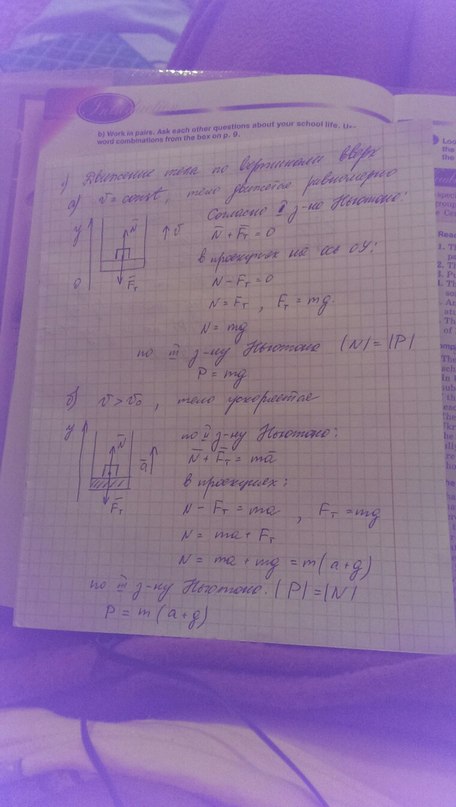 b) Work in pairs. Ask each other questions about your school life. U
word combinations from the box on p. 9.
1) Движение тела по вертикале вверх
а) v = const, тело движется равномерно
Согласно I з-на Ньютона:
y
N̄
↑ v̄
N̄ + F̄т = 0
в проекциях на ось OY:
0
F̄т
N - Fт = 0
N = Fт , Fт = mg
N = mg
по III з-ну Ньютона |N| = |P|
P = mg
б) v > v₀ , тело ускоряется
y
N̄
ā
F̄т
по II з-ну Ньютона:
N̄ + F̄т = mā
в проекциях:
N - Fт = ma , Fт = mg
N = ma + Fт
N = ma + mg = m(a+g)
по III з-ну Ньютона: |P| = |N|
P = m(a+g)
Loo
the
the
Read
1. Th
2. Th
3. Pu